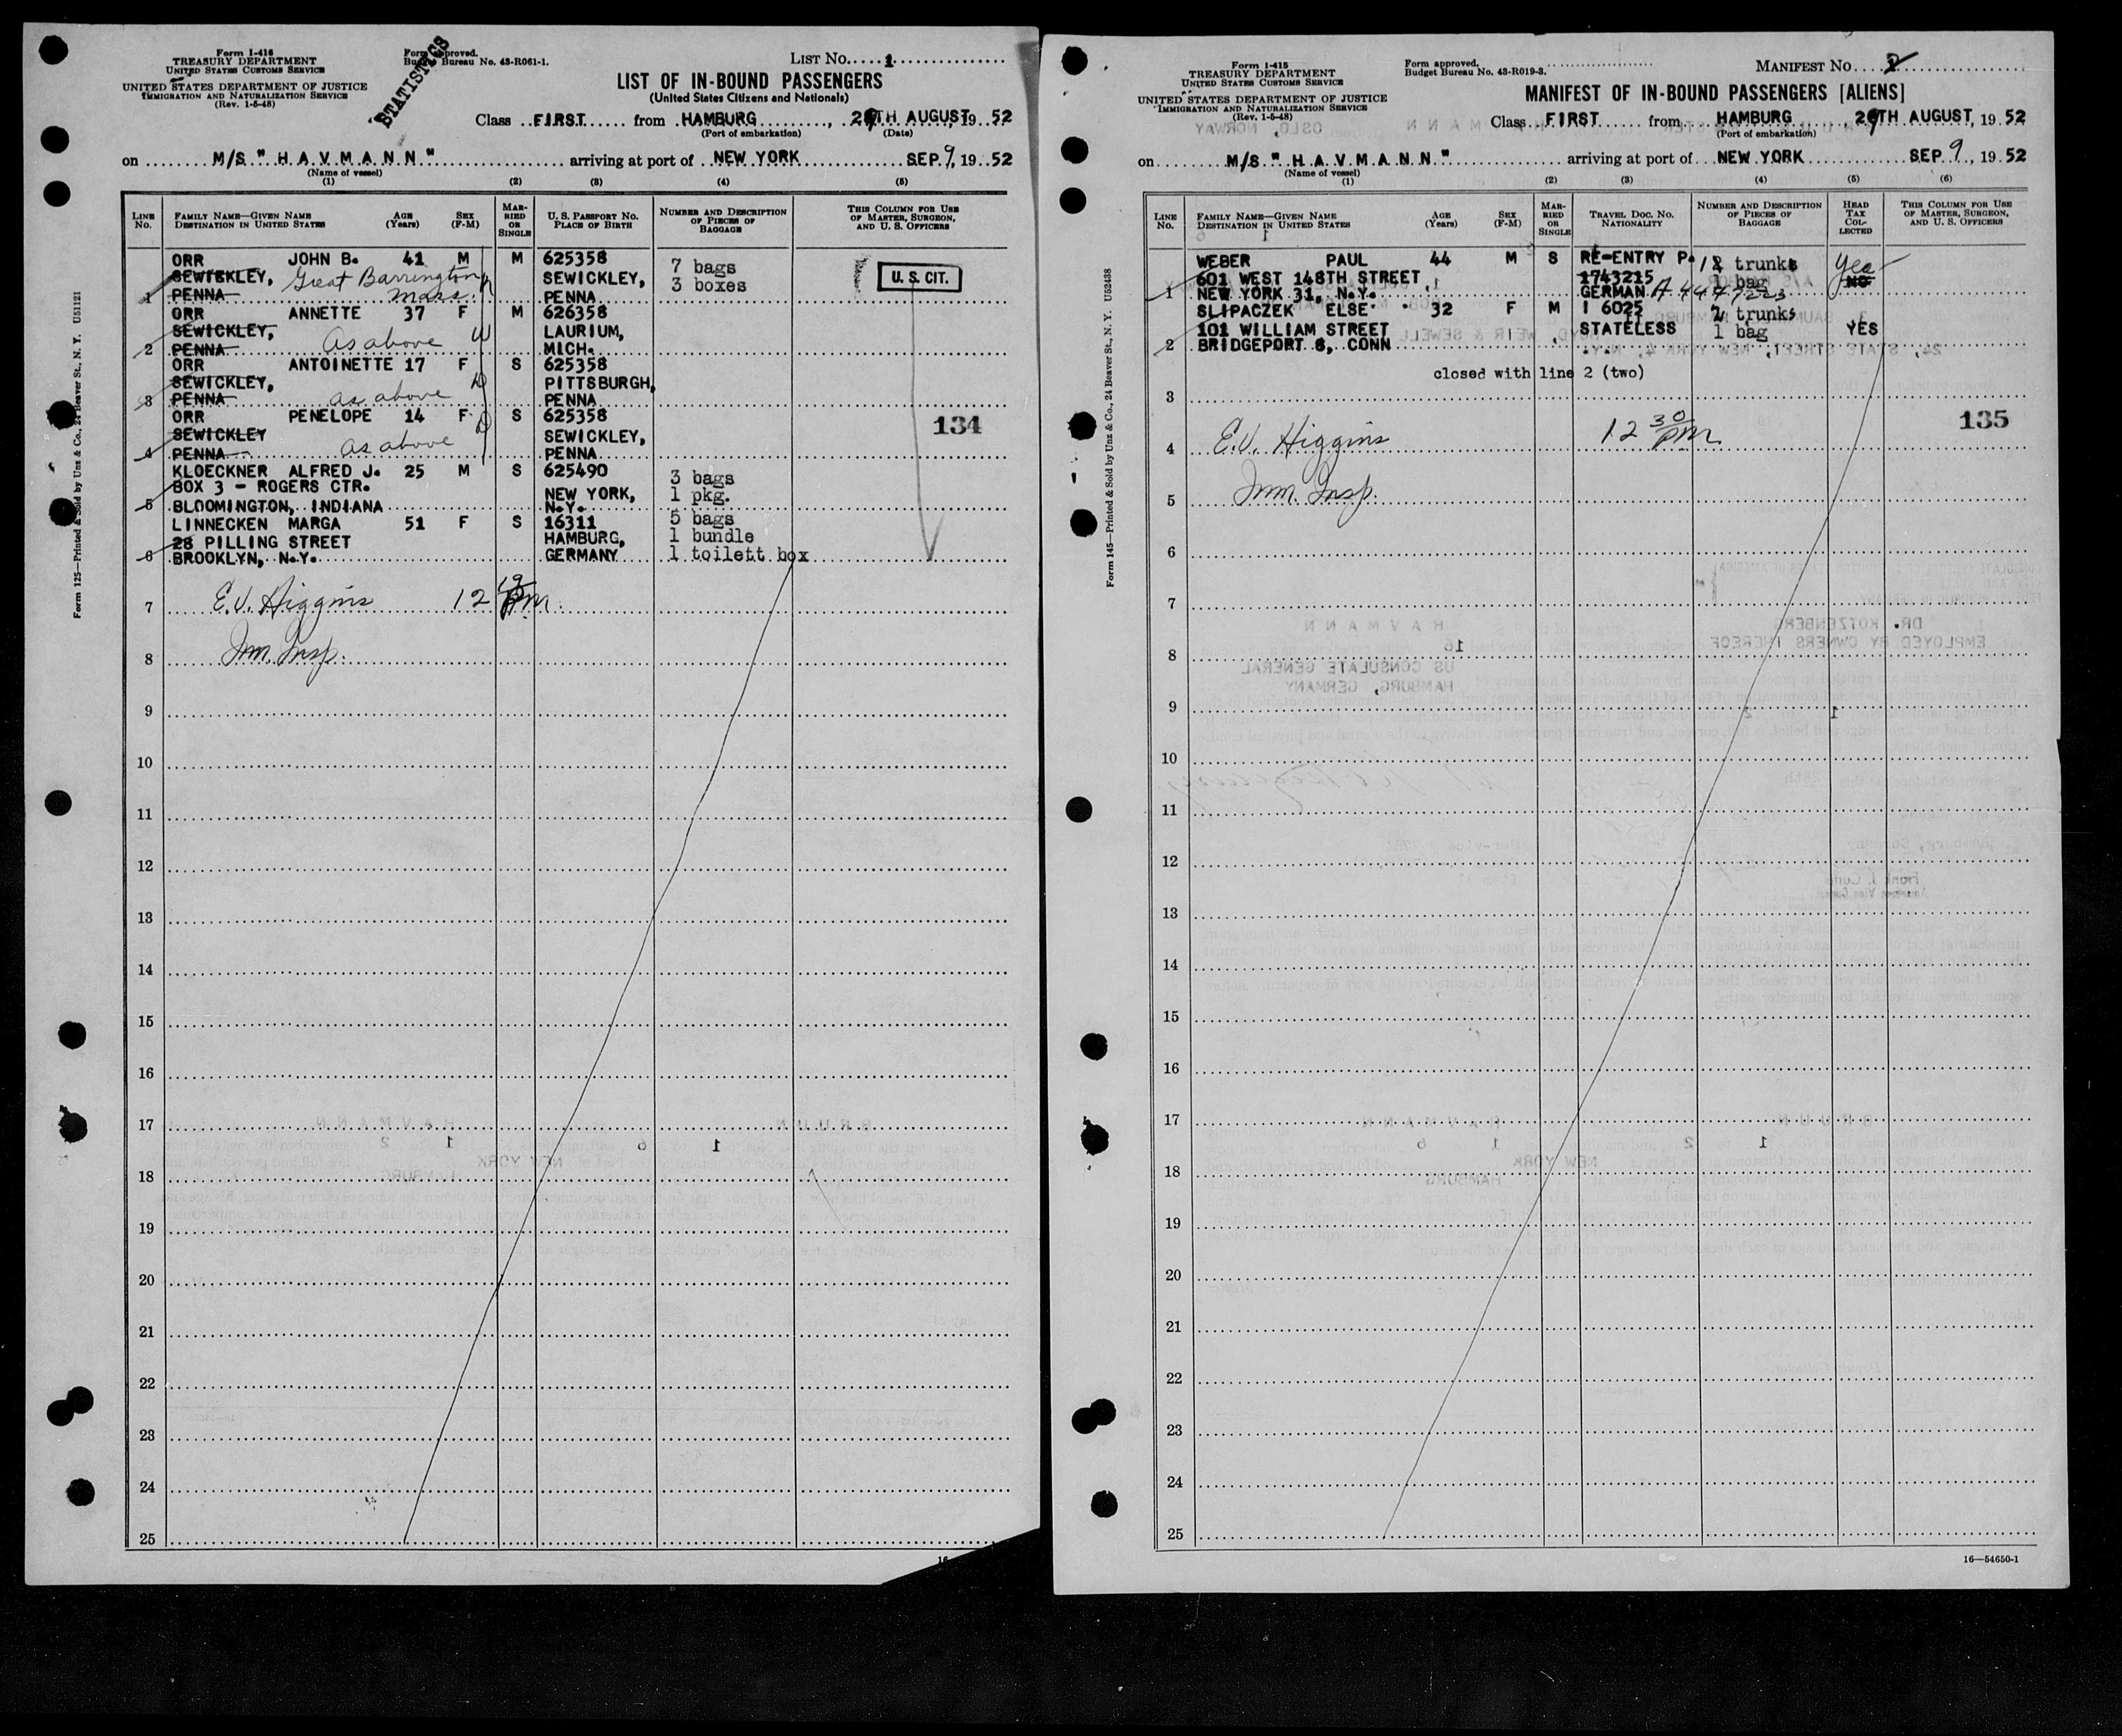 Form I-416
TREASURY DEPARTMENT
UNITED STATES CUSTOMS SERVICE
UNITED STATES DEPARTMENT OF JUSTICE
IMMIGRATION AND NATURALIZATION SERVICE
(Rev. 1-5-48)
STATISTICS
Form approved.
Budget Bureau No. 43-R061-1.
LIST NO. 1
LIST OF IN-BOUND PASSENGERS
(United States Citizens and Nationals)
Class FIRST from HAMBURG, 29TH AUGUST, 19 52
(Port of embarkation) (Date)
on M/S "HAVMANN" arriving at port of NEW YORK SEP 9, 19 52
(Name of vessel)
(1) (2) (3) (4) (5)
LINE NO. FAMILY NAME—GIVEN NAME DESTINATION IN UNITED STATES AGE (Years) SEX (F-M) MARRIED OR SINGLE U. S. PASSPORT NO. PLACE OF BIRTH NUMBER AND DESCRIPTION OF PIECES OF BAGGAGE THIS COLUMN FOR USE OF MASTER, SURGEON, AND U. S. OFFICERS
ORR JOHN B. 41 M M 625358 7 bags
SEWICKLEY, Great Barrington SEWICKLEY, 3 boxes U. S. CIT.
1 PENNA Mass. PENNA
ORR ANNETTE 37 F M 626358
SEWICKLEY, As above W LAURIUM,
2 PENNA MICH.
ORR ANTOINETTE 17 F S 625358
SEWICKLEY, as above D PITTSBURGH,
3 PENNA PENNA
ORR PENELOPE 14 F D S 625358
SEWICKLEY as above SEWICKLEY, 134
4 PENNA PENNA
KLOECKNER ALFRED J. 25 M S 625490 3 bags
BOX 3 - ROGERS CTR. NEW YORK, 1 pkg.
5 BLOOMINGTON, INDIANA N.Y.
LINNECKEN MARGA 51 F S 16311 5 bags
28 PILLING STREET HAMBURG, 1 bundle
6 BROOKLYN, N.Y. GERMANY 1 toilett box
7 E.V. Higgins 12 pm.
8 Imm. Insp.
9
10
11
12
13
14
15
16
17
18
19
20
21
22
23
24
25
Form 125—Printed & Sold by Unz & Co., 24 Beaver St., N. Y. U51121
Form I-415
TREASURY DEPARTMENT
UNITED STATES CUSTOMS SERVICE
UNITED STATES DEPARTMENT OF JUSTICE
IMMIGRATION AND NATURALIZATION SERVICE
(Rev. 1-5-48)
Form approved.
Budget Bureau No. 43-R019-3.
MANIFEST NO. 2
MANIFEST OF IN-BOUND PASSENGERS [ALIENS]
Class FIRST from HAMBURG, 29TH AUGUST, 19 52
(Port of embarkation)
on M/S "HAVMANN" arriving at port of NEW YORK SEP 9, 19 52
(Name of vessel)
(1) (2) (3) (4) (5) (6)
LINE NO. FAMILY NAME—GIVEN NAME DESTINATION IN UNITED STATES AGE (Years) SEX (F-M) MARRIED OR SINGLE TRAVEL DOC. NO. NATIONALITY NUMBER AND DESCRIPTION OF PIECES OF BAGGAGE HEAD TAX COLLECTED THIS COLUMN FOR USE OF MASTER, SURGEON, AND U. S. OFFICERS
WEBER PAUL 44 M S RE-ENTRY P. trunks Yes
601 WEST 148TH STREET 1743215 1 bag NO
1 NEW YORK 31, N.Y. GERMAN
SLIPACZEK ELSE 32 F M I 6025 trunks
101 WILLIAM STREET STATELESS 1 bag YES
2 BRIDGEPORT 8, CONN
closed with line 2 (two)
3
135
4 E.V. Higgins 12 30 pm
5 Imm. Insp.
6
7
8
9
10
11
12
13
14
15
16
17
18
19
20
21
22
23
24
25
16—54650-1
Form 145—Printed & Sold by Unz & Co., 24 Beaver St., N. Y. U52438